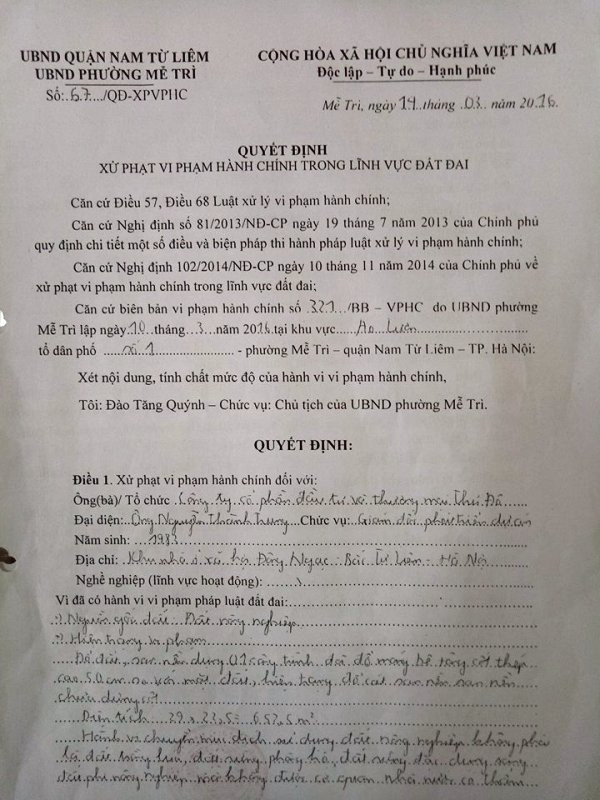 UBND QUẬN NAM TỪ LIÊM
UBND PHƯỜNG MỄ TRÌ
Số: 67 /QĐ-XPVPHC
CỘNG HÒA XÃ HỘI CHỦ NGHĨA VIỆT NAM
Độc lập – Tự do – Hạnh phúc
Mễ Trì, ngày 14 tháng 03 năm 2016.
QUYẾT ĐỊNH
XỬ PHẠT VI PHẠM HÀNH CHÍNH TRONG LĨNH VỰC ĐẤT ĐAI
Căn cứ Điều 57, Điều 68 Luật xử lý vi phạm hành chính;
Căn cứ Nghị định số 81/2013/NĐ-CP ngày 19 tháng 7 năm 2013 của Chính phủ
quy định chi tiết một số điều và biện pháp thi hành pháp luật xử lý vi phạm hành chính;
Căn cứ Nghị định 102/2014/NĐ-CP ngày 10 tháng 11 năm 2014 của Chính phủ về
xử phạt vi phạm hành chính trong lĩnh vực đất đai;
Căn cứ biên bản vi phạm hành chính số 321 /BB – VPHC do UBND phường
Mễ Trì lập ngày 10 tháng 3 năm 2016 tại khu vực Ao
tổ dân phố số 1 - phường Mễ Trì – quận Nam Từ Liêm – TP. Hà Nội:
Xét nội dung, tính chất mức độ của hành vi vi phạm hành chính,
Tôi: Đào Tăng Quýnh – Chức vụ: Chủ tịch của UBND phường Mễ Trì.
QUYẾT ĐỊNH:
Điều 1. Xử phạt vi phạm hành chính đối với:
Ông(bà)/ Tổ chức Công ty cổ phần đầu tư và thương mại Thủ Đô
Đại diện: Ông Nguyễn Thành Trung Chức vụ: Giám đốc phát triển dự án
Năm sinh: 1983
Địa chỉ: Khu nhà ở xã hội Đông Ngạc - Bắc Từ Liêm - Hà Nội
Nghề nghiệp (lĩnh vực hoạt động):
Vì đã có hành vi vi phạm pháp luật đất đai:
Nguồn gốc đất: Đất nông nghiệp
Hiện trạng vi phạm
Đổ đất, san nền dựng 02 công trình, đã đổ móng bê tông cốt thép
cao 50 cm so với mặt đất, hiện trạng đổ cát san nền
chưa dựng cột
Diện tích 29 x 22,5 = 652,5 m²
Hành vi chuyển mục đích sử dụng đất nông nghiệp không phải
là đất trồng lúa, đất rừng phòng hộ, đất rừng đặc dụng sang
đất phi nông nghiệp mà không được cơ quan nhà nước có thẩm